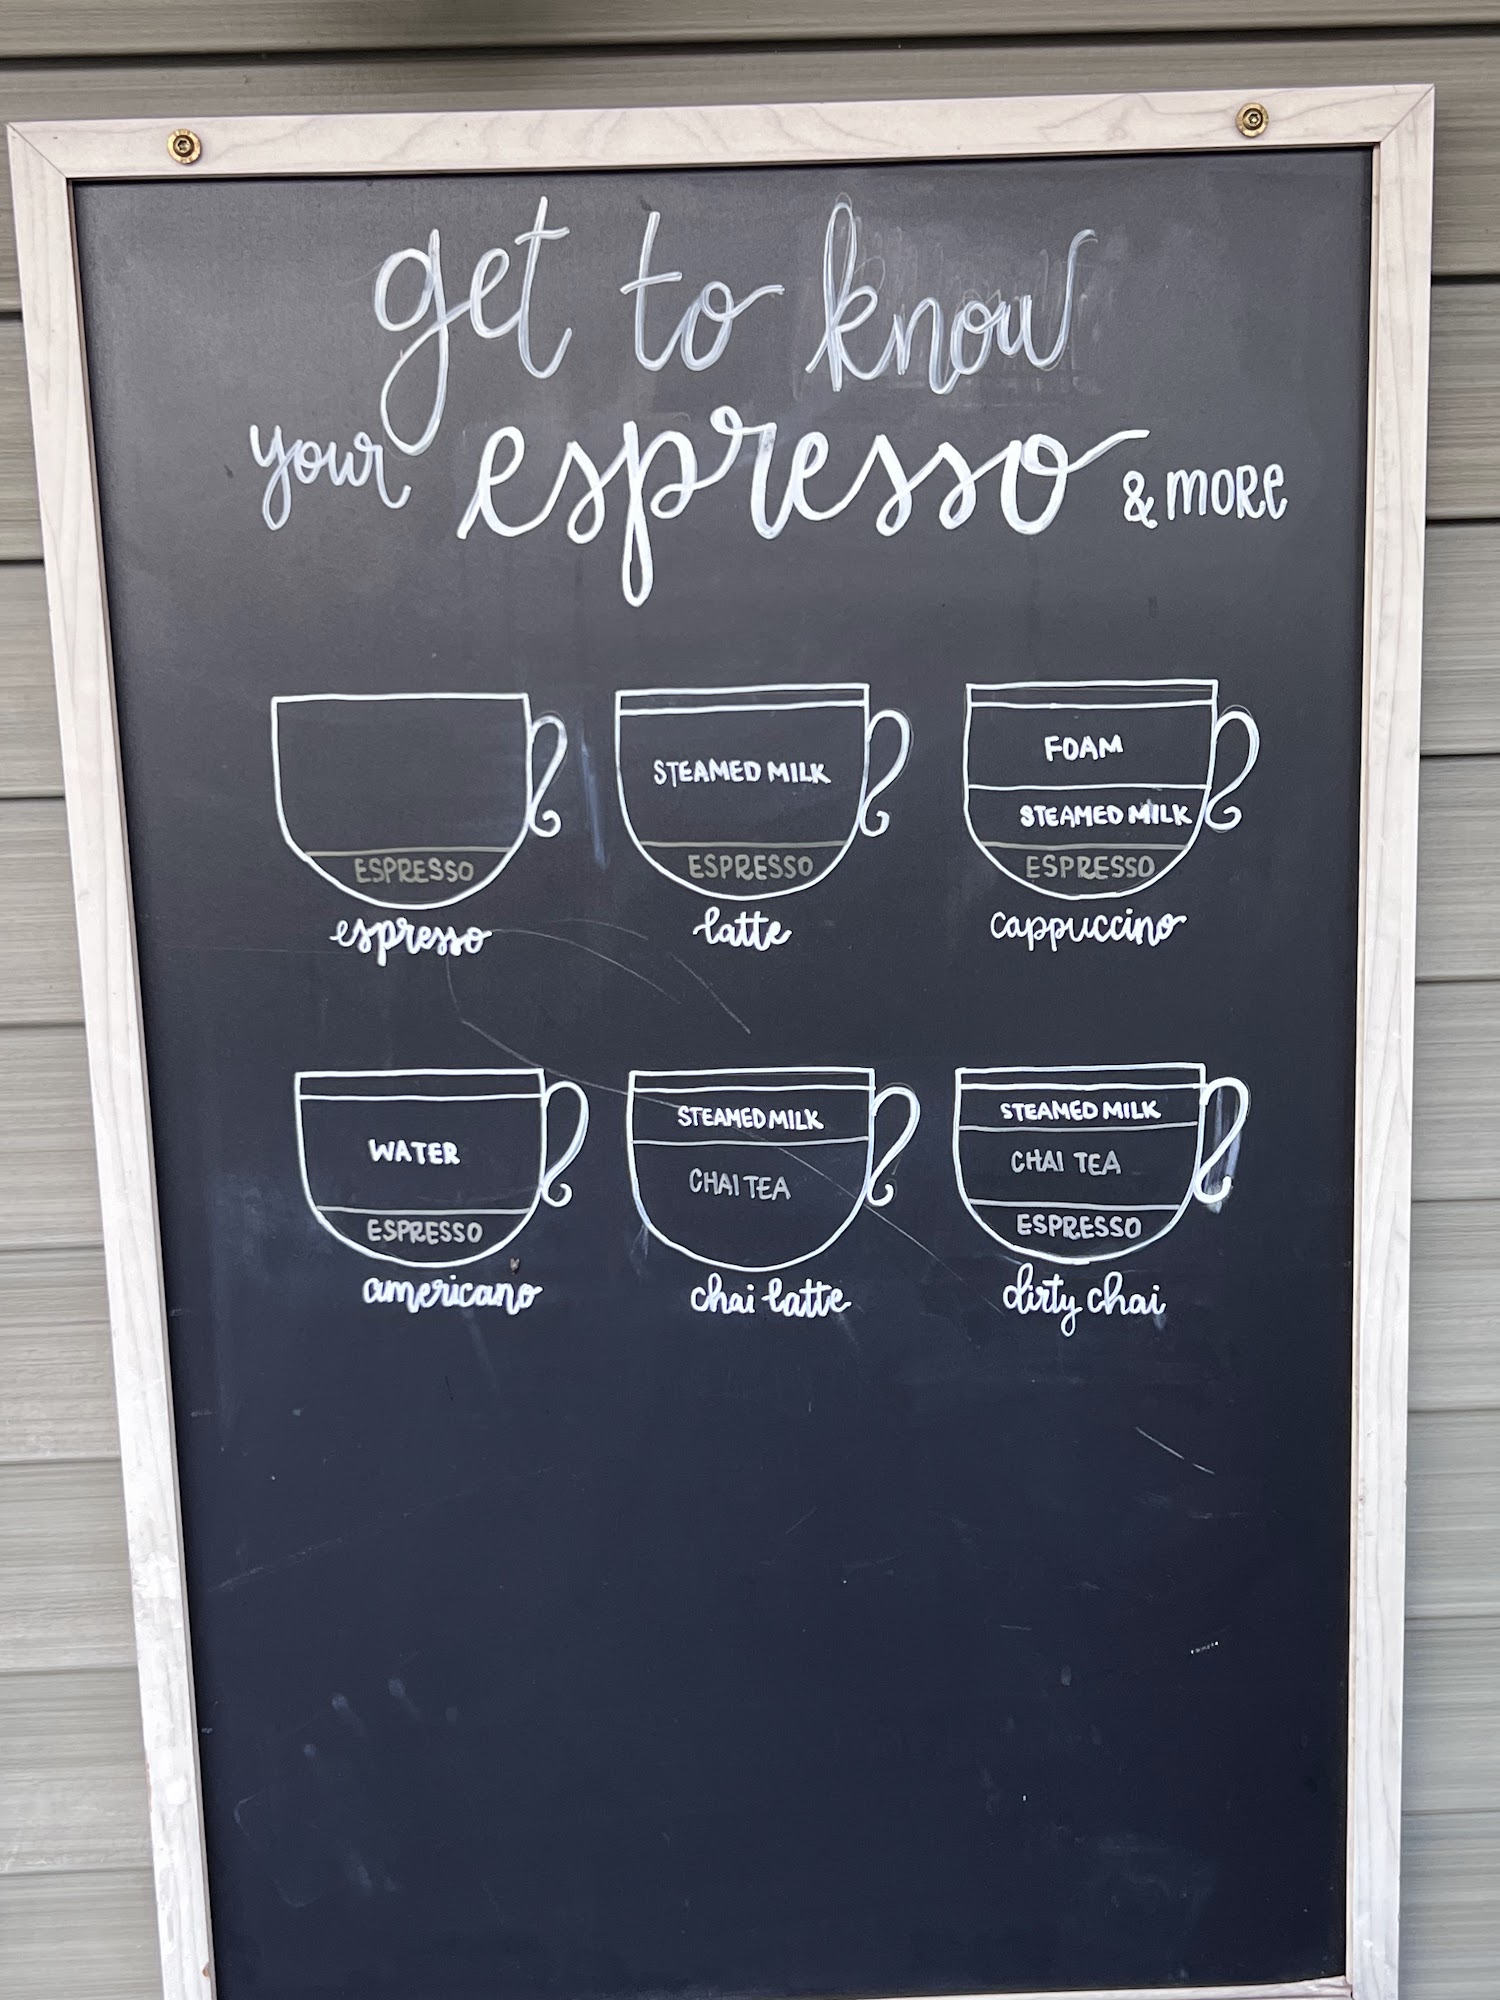 get to know
your espresso & MORE
ESPRESSO
espresso
STEAMED MILK
ESPRESSO
latte
FOAM
STEAMED MILK
ESPRESSO
cappuccino
WATER
ESPRESSO
americano
STEAMED MILK
CHAI TEA
chai latte
STEAMED MILK
CHAI TEA
ESPRESSO
dirty chai